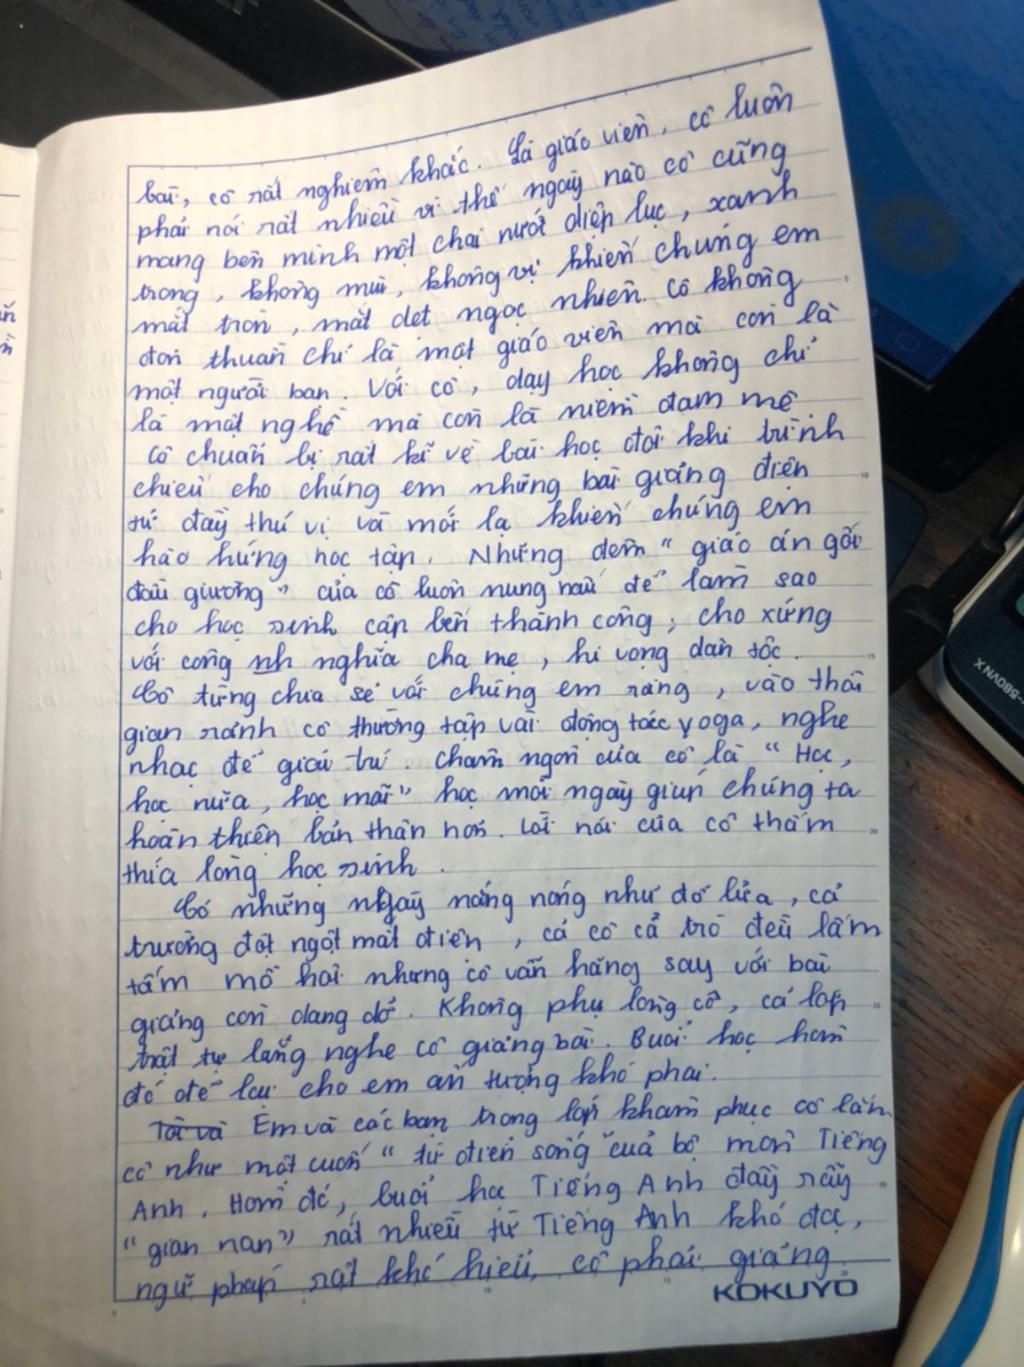 bài, cô rất nghiêm khắc. Là giáo viên, cô luôn
phải nói rất nhiều vì thế ngày nào cô cũng
mang bên mình một chai nước diệp lục, xanh
trong, không mùi, không vị khiến chúng em
mắt tròn, mắt dẹt ngạc nhiên. Cô không
đơn thuần chỉ là một giáo viên mà còn là
một người bạn. Với cô, dạy học không chỉ
là một nghề mà còn là niềm đam mê
Cô chuẩn bị rất kĩ về bài học đôi khi trình
chiếu cho chúng em những bài giảng điện
tử đầy thú vị và mới lạ khiến chúng em
hào hứng học tập. Những đêm " giáo án gối
đầu giường " của cô luôn nung nấu để làm sao
cho học sinh cập bến thành công, cho xứng
với công nh nghĩa cha mẹ, hi vọng dân tộc.
Cô từng chia sẻ với chúng em rằng, vào thời
gian rảnh cô thường tập vài động tác yoga, nghe
nhạc để giải trí. Châm ngôn của cô là " Học,
học nữa, học mãi" học mỗi ngày giúp chúng ta
hoàn thiện bản thân hơn. Lời nói của cô thấm
thía lòng học sinh.
Có những ngày nắng nóng như đổ lửa, cả
trường đột ngột mất điện, cả cô cả trò đều lấm
tấm mồ hôi nhưng cô vẫn hăng say với bài
giảng còn dang dở. Không phụ lòng cô, cả lớp
trật tự lắng nghe cô giảng bài. Buổi học hôm
đó để lại cho em ấn tượng khó phai.
Tôi và Em và các bạn trong lớp khâm phục cô lắm
cô như một cuốn " từ điển sống " của bộ môn Tiếng
Anh. Hôm đó, buổi học Tiếng Anh đầy rẫy
" gian nan" rất nhiều từ Tiếng Anh khó đọc,
ngữ pháp rất khó hiểu, cô phải giảng
KOKUYO